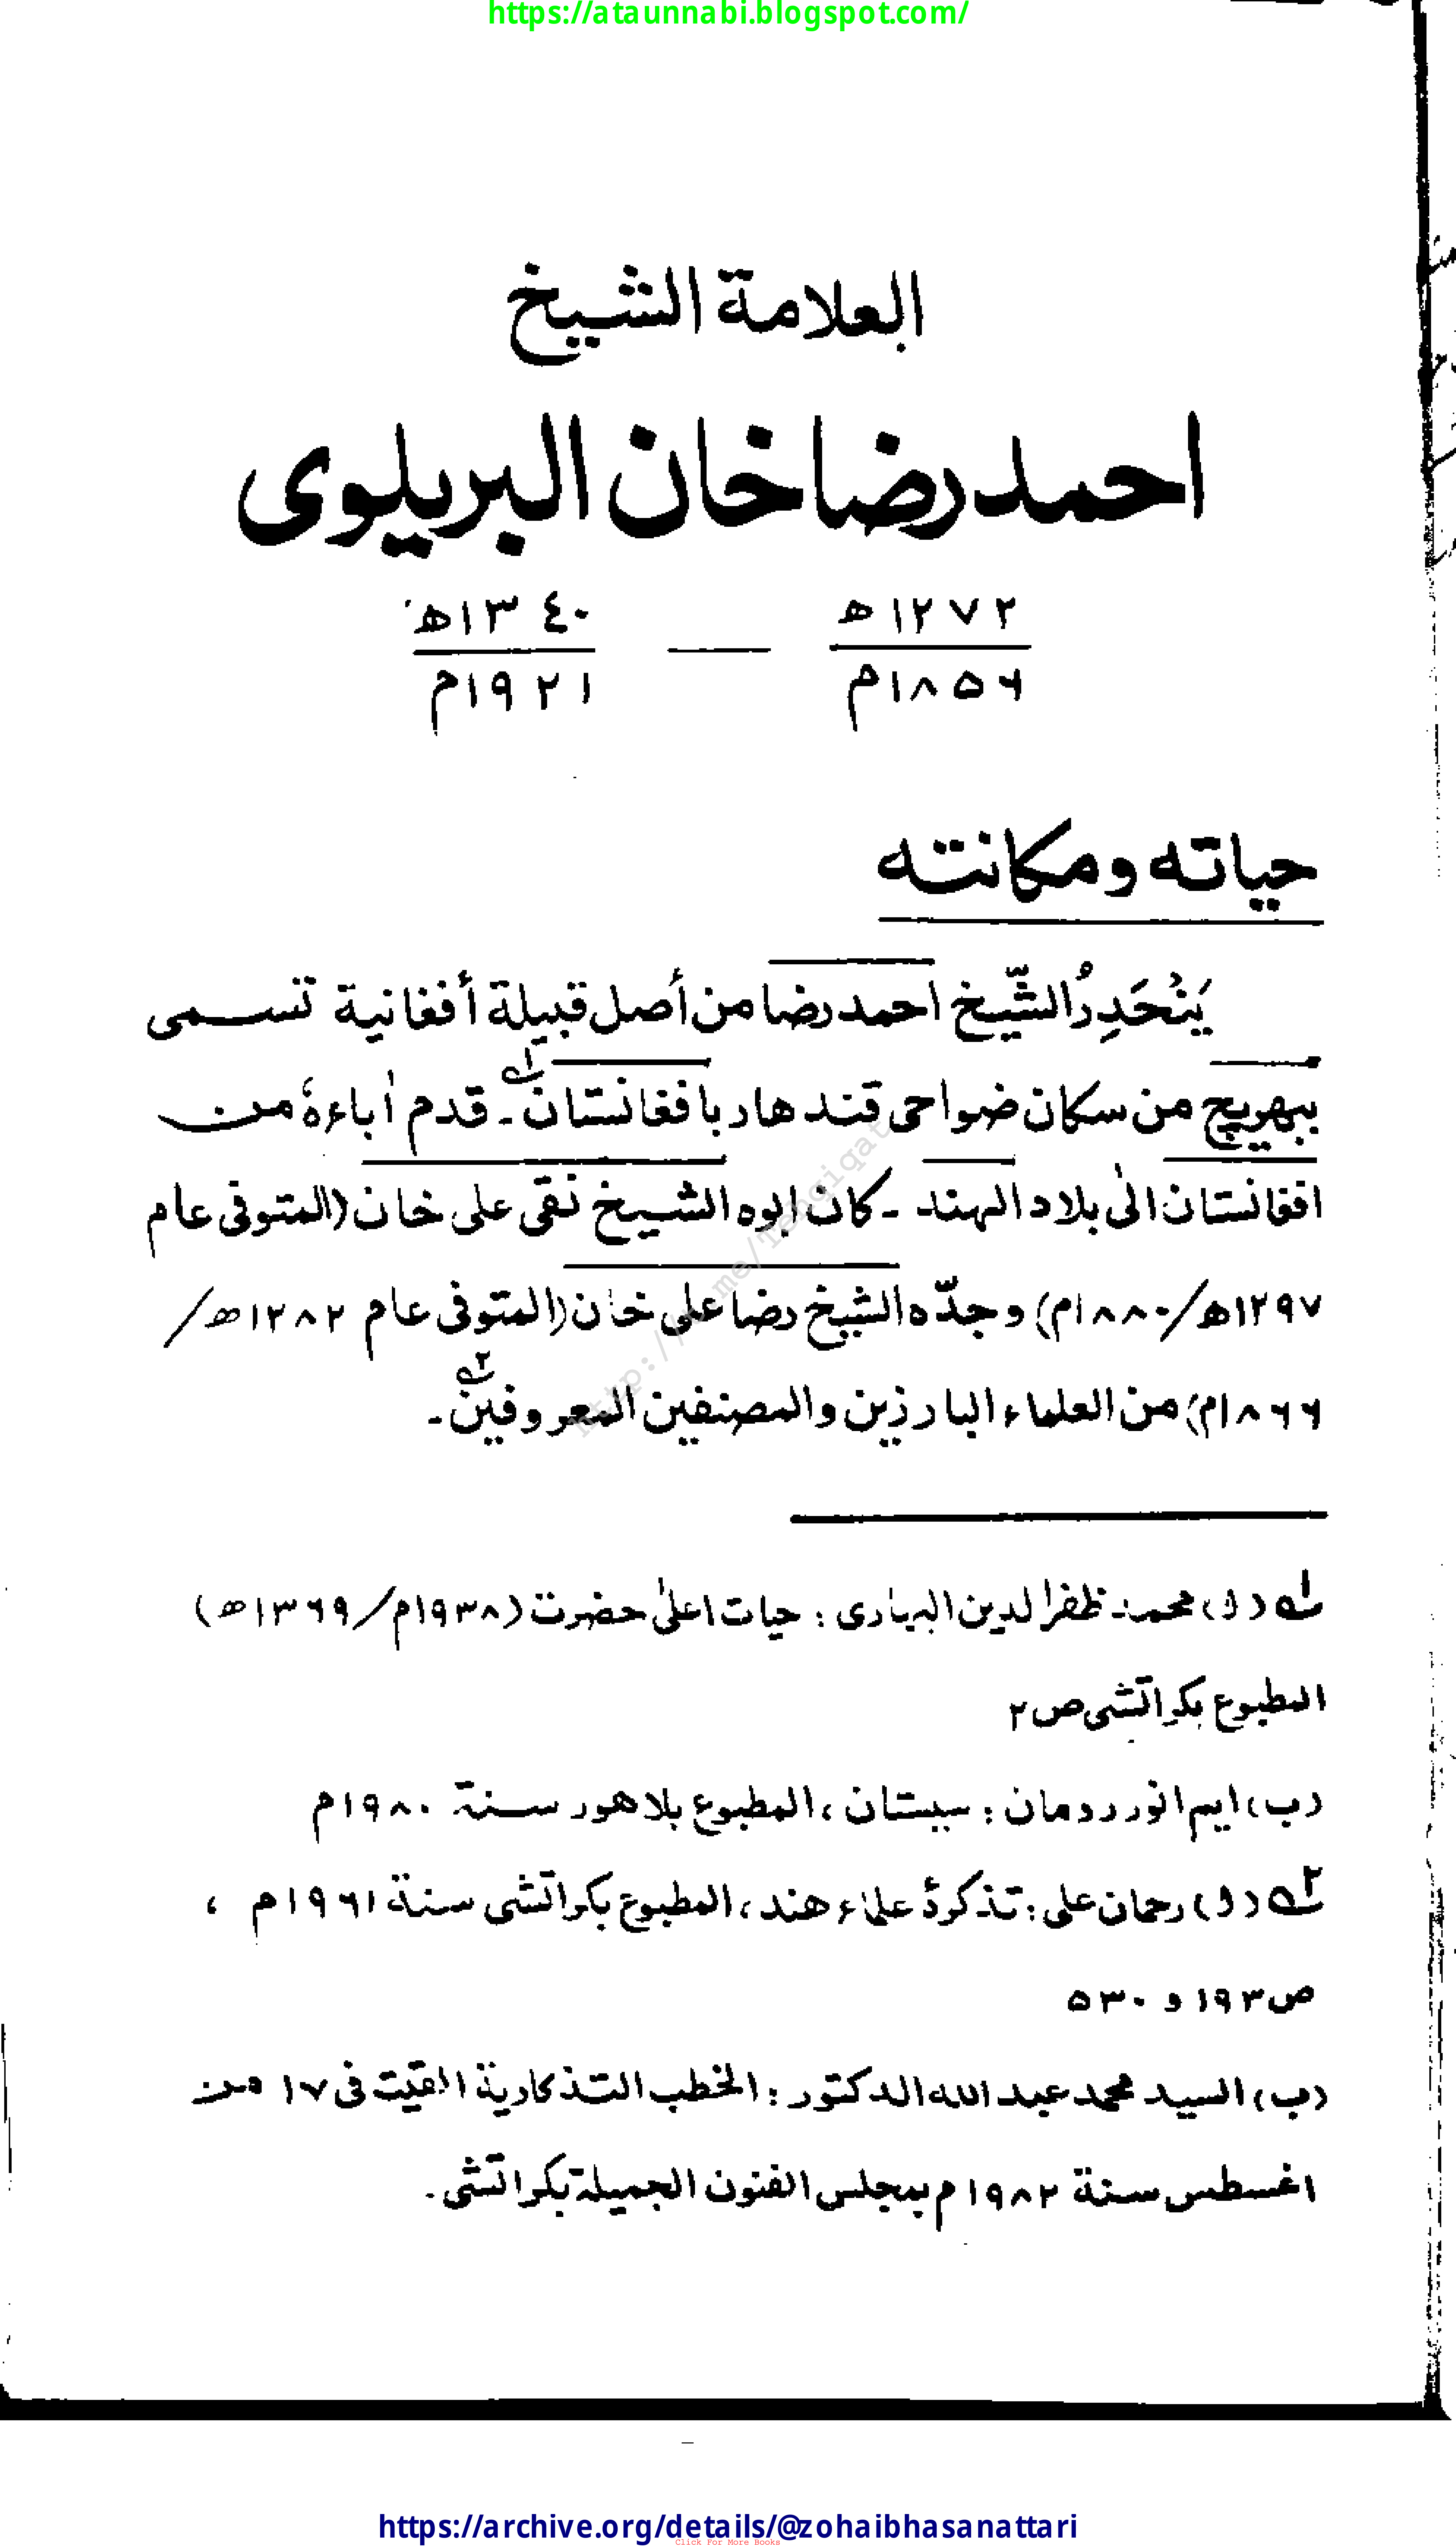 https://ataunnabi.blogspot.com/
العلامة الشيخ
احمد رضا خان البريلوى
١٢٧٢ھ — ١٣٤٠ھ
١٨۵۶م ١٩٢١م
حياته ومكانته
يَنْحَدِرُ الشّيخ احمد رضا من أصل قبيلة أفغانية تسمى
ببهريچ من سكان ضواحى قندهار بافغانستان۱؎ ـ قدم اٰباءهٗ من
افغانستان الىٰ بلاد الهند ـ كان ابوه الشيخ نقى على خان (المتوفى عام
١٢٩٧ھ/١٨٨٠م) وجدّه الشيخ رضا على خان (المتوفى عام ١٢٨٢ھ/
١٨۶۶م) من العلماء البارزين والمصنفين المعروفين۲؎ ـ
۱؎ (ا) محمد ظفر الدين البهارى : حيات اعلىٰ حضرت (١٩٣٨م/١٣۶٩ھ)
المطبوع بكراتشى ص ٢
(ب) ايم انور رومان : سيستان ، المطبوع بلاهور سنة ١٩٨٠م
۲؎ (ا) رحمان على : تذكرۀ علماء هند ، المطبوع بكراتشى سنة ١٩۶١م ،
ص ١٩٣ و ۵٣٠
(ب) السيد محمد عبد الله الدكتور : الخطب التذكارية القيت فى ١٧ من
اغسطس سنة ١٩٨٢م بمجلس الفنون الجميلة بكراتشى ـ
https://archive.org/details/@zohaibhasanattari
Click For More Books